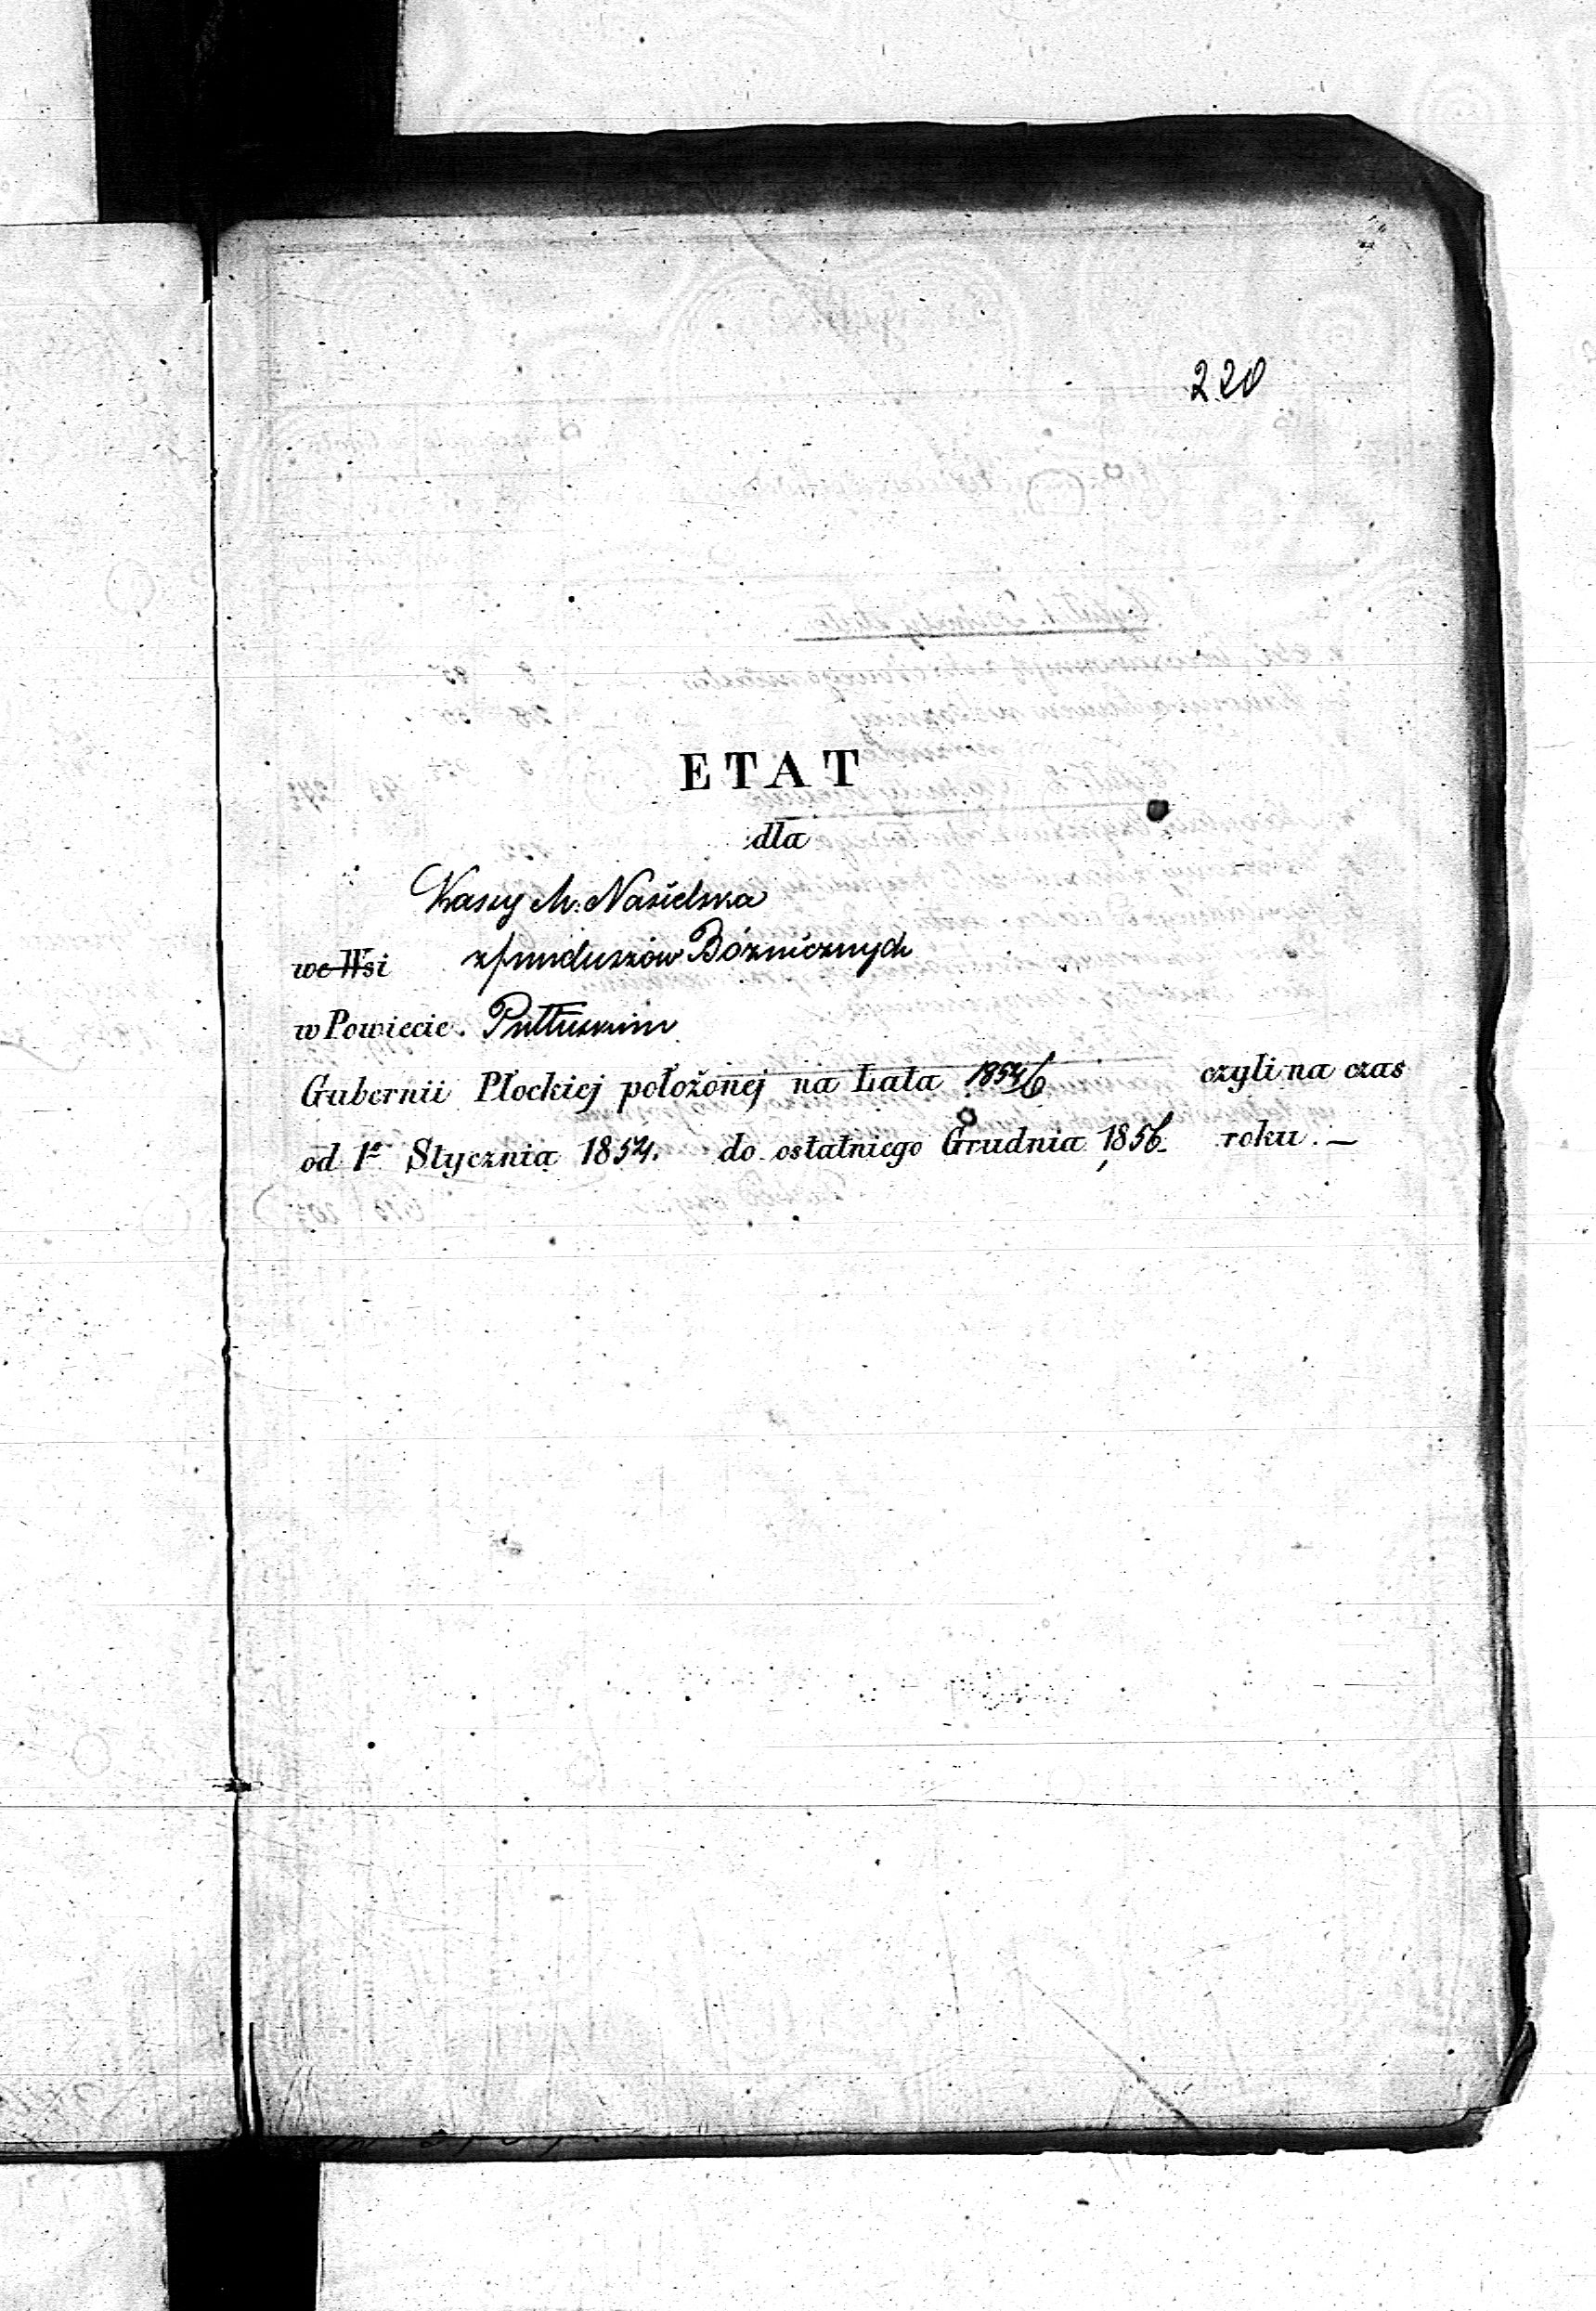 220
ETAT
dla
Kassy M. Nasielska
we Wsi z funduszów Bóżnicznych
w Powiecie. Pułtuskim
Gubernii Płockiej położonej na Lata 1854/6 czyli na czas
od 1º Stycznia 1854. do ostatniego Grudnia 1856. roku. —